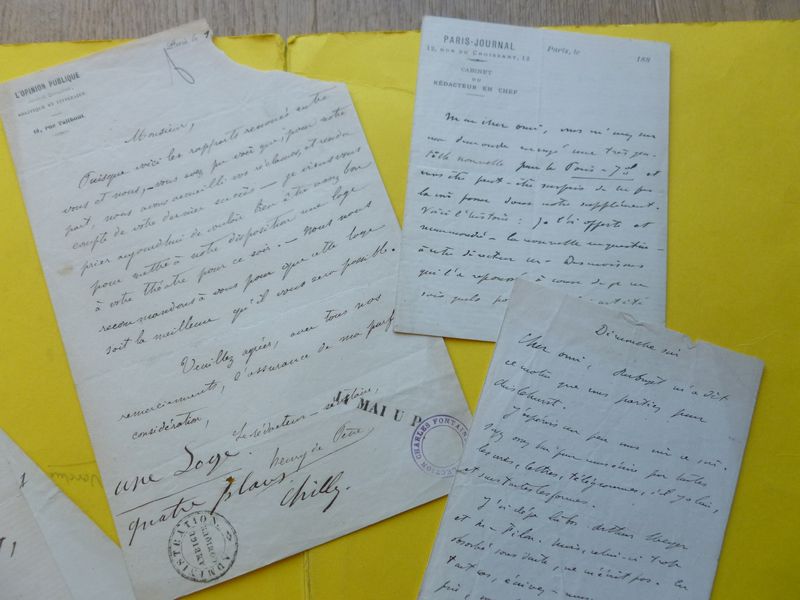 L'OPINION PUBLIQUE
POLITIQUE ET LITTÉRAIRE
10, rue Taitbout
Paris le
Monsieur,
Puisque voici les rapports renoués entre
vous et nous, – vous avez pu voir que, pour notre
part, nous avons accueilli vos réclames, et rendu
compte de votre dernier succès – je viens vous
prier aujourd'hui de vouloir bien être assez bon
pour mettre à notre disposition une loge
à votre théâtre pour ce soir. – Nous nous
recommandons à vous pour que cette loge
soit la meilleure qu'il vous sera possible.
Veuillez agréer, avec tous nos
remerciements, l'assurance de ma parf
considération,
Le rédacteur – secrétaire,
henry de Pène
une Loge
quatre places
Chilly
MAI
CHARLES FONTAINE
ADMINISTRATION
AMBIGU COMIQUE
PARIS-JOURNAL
12, RUE DU CROISSANT, 12
CABINET
DU
RÉDACTEUR EN CHEF
Paris, le 188
Mon cher ami, vous m'avez sur
ma demande envoyé une très gen-
tille nouvelle pour le Paris-Jl et
vous être peut-être surpris de ne pas
la voir dans notre supplément.
Voici l'histoire : Je l'ai offerte et
recommandé – la nouvelle en question –
à notre directeur
qui l'a repoussé à cause de je ne
sais quels
Dimanche soir
Cher ami, m'a dit
ce matin que vous partiez pour
Chislehurst.
J'espérais un peu vous voir ce soir.
lettres, télégrammes, s'il y a lieu,
et sous toutes les formes.
J'ai déjà là-bas Arthur Meyer
et M. Filon. mais, celui-ci trop
absorbé sans doute, ne m'écrit pas. En
tout cas, écrivez-